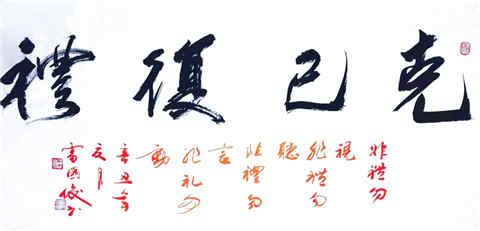 克己復禮
非禮勿
視
非禮勿
聽
非禮勿
言
非礼勿
動
辛丑年
夏月